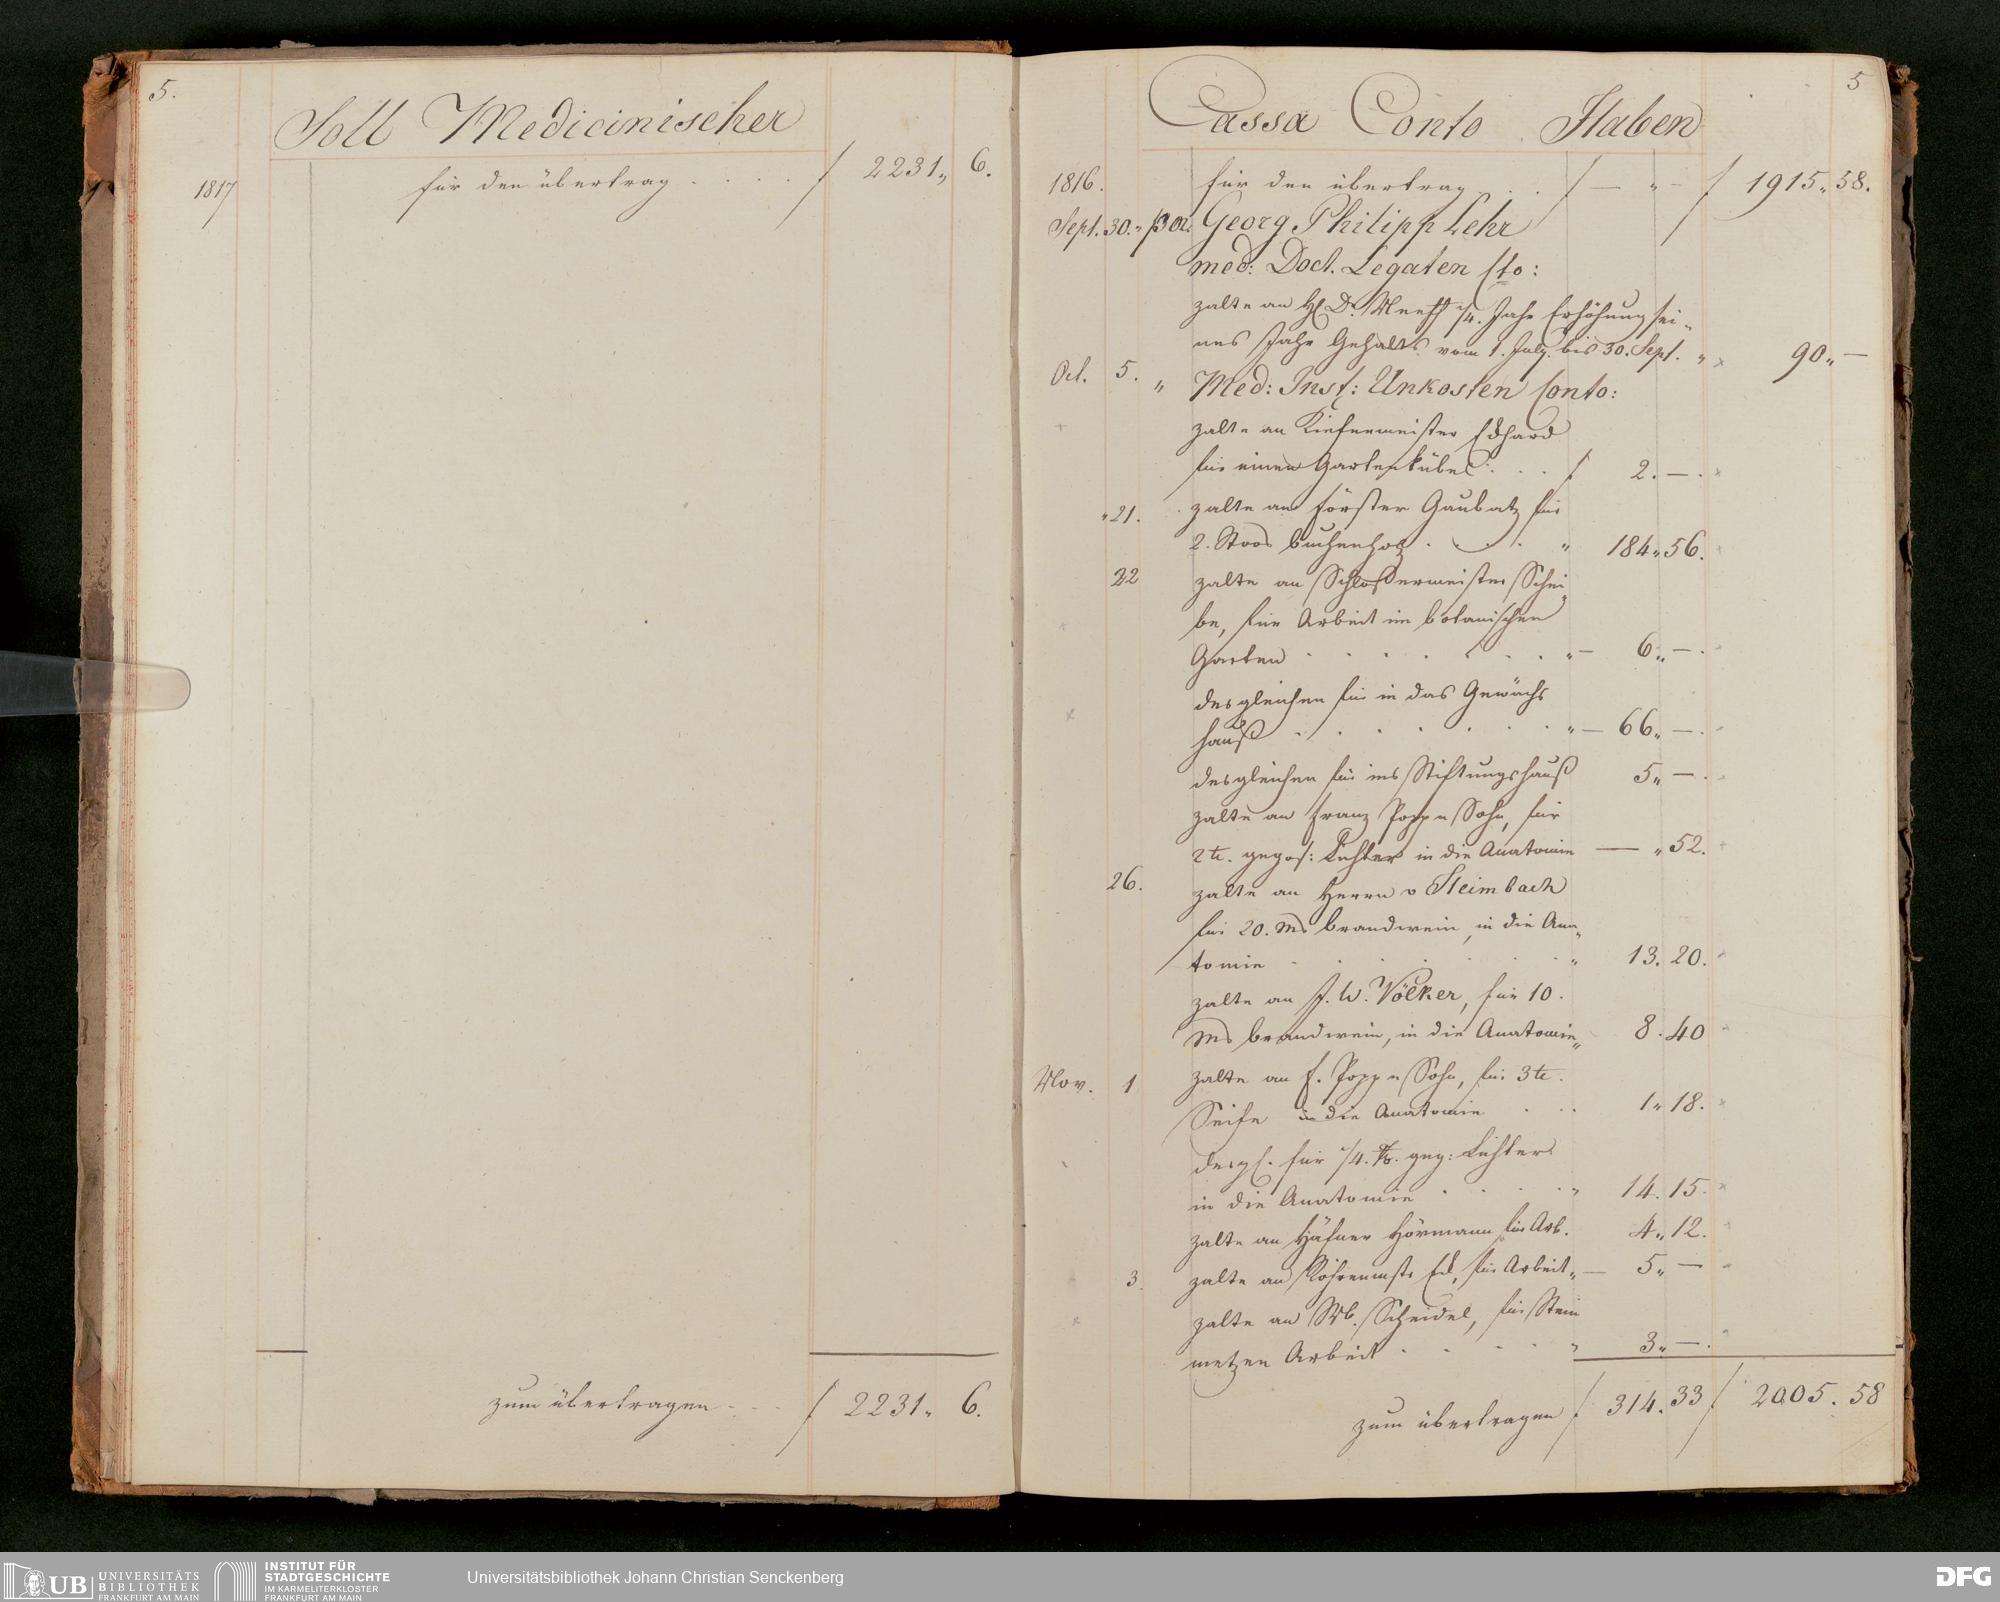 5.
Soll Medicinischer
1817 für den übertrag . . . . f 2231„ 6.
zum übertragen - - - f 2231„ 6.
5
Cassa Conto Haben
1816. für den übertrag . . . f — „ — f 1915„ 58.
Sept. 30. „ Georg Philipp Lehr
med: Doct. Legaten Cto:
zalte an H D. Neeff 1/4. Jahr Erhöhung sei„
nes Jahr Gehalts vom 1. July. bis 30. Sept. „ 90„ —
Oct. 5. „ Med: Inst: Unkosten Conto:
zalte an Kiefermeister Eckhard
für einen Gartenkübel . . . f 2. —.
„ 21. zalte an Förster Gaubatz für
2. Stoos buchenholz . . . „ 184„ 56.
22 zalte an Schloßermeister Schei„
be, für Arbeit im botanischen
Garten . . . . . . „ — 6„ —.
desgleichen für in das Gewächs
hauß . . . . . . . „ — 66„ —.
desgleichen für ins Stiftungshauß 5„ —.
zalte an Franz Popp u Sohn, für
2 ℔. gegos: Lichter in die Anatomie — „ 52.
26. zalte an Herrn v Steimbach
für 20. Ms brandwein, in die Ana„
tomie . . . . . . „ 13. 20.
zalte an J. W. Völker, für 10.
Ms brandwein, in die Anatomie„ 8. 40
Nov. 1 zalte an F. Popp u Sohn, für 3 ℔.
Seife in die Anatomie . . . 1„ 18.
desgl. für 1/4. geg: Lichter
in die Anatomie . . . . „ 14. 15.
zalte an Häfner Hörmann für Arb. 4„ 12.
3. zalte an Röhrenmstr Eck, für Arbeit„ — 5„ —
zalte an Wb. Scheidel, für Stein
metzen Arbeit . . . . „ 3„ —.
zum übertragen f 314. 33 f 2005. 58
UB UNIVERSITÄTS
BIBLIOTHEK
FRANKFURT AM MAIN
INSTITUT FÜR
STADTGESCHICHTE
IM KARMELITERKLOSTER
FRANKFURT AM MAIN
Universitätsbibliothek Johann Christian Senckenberg
DFG